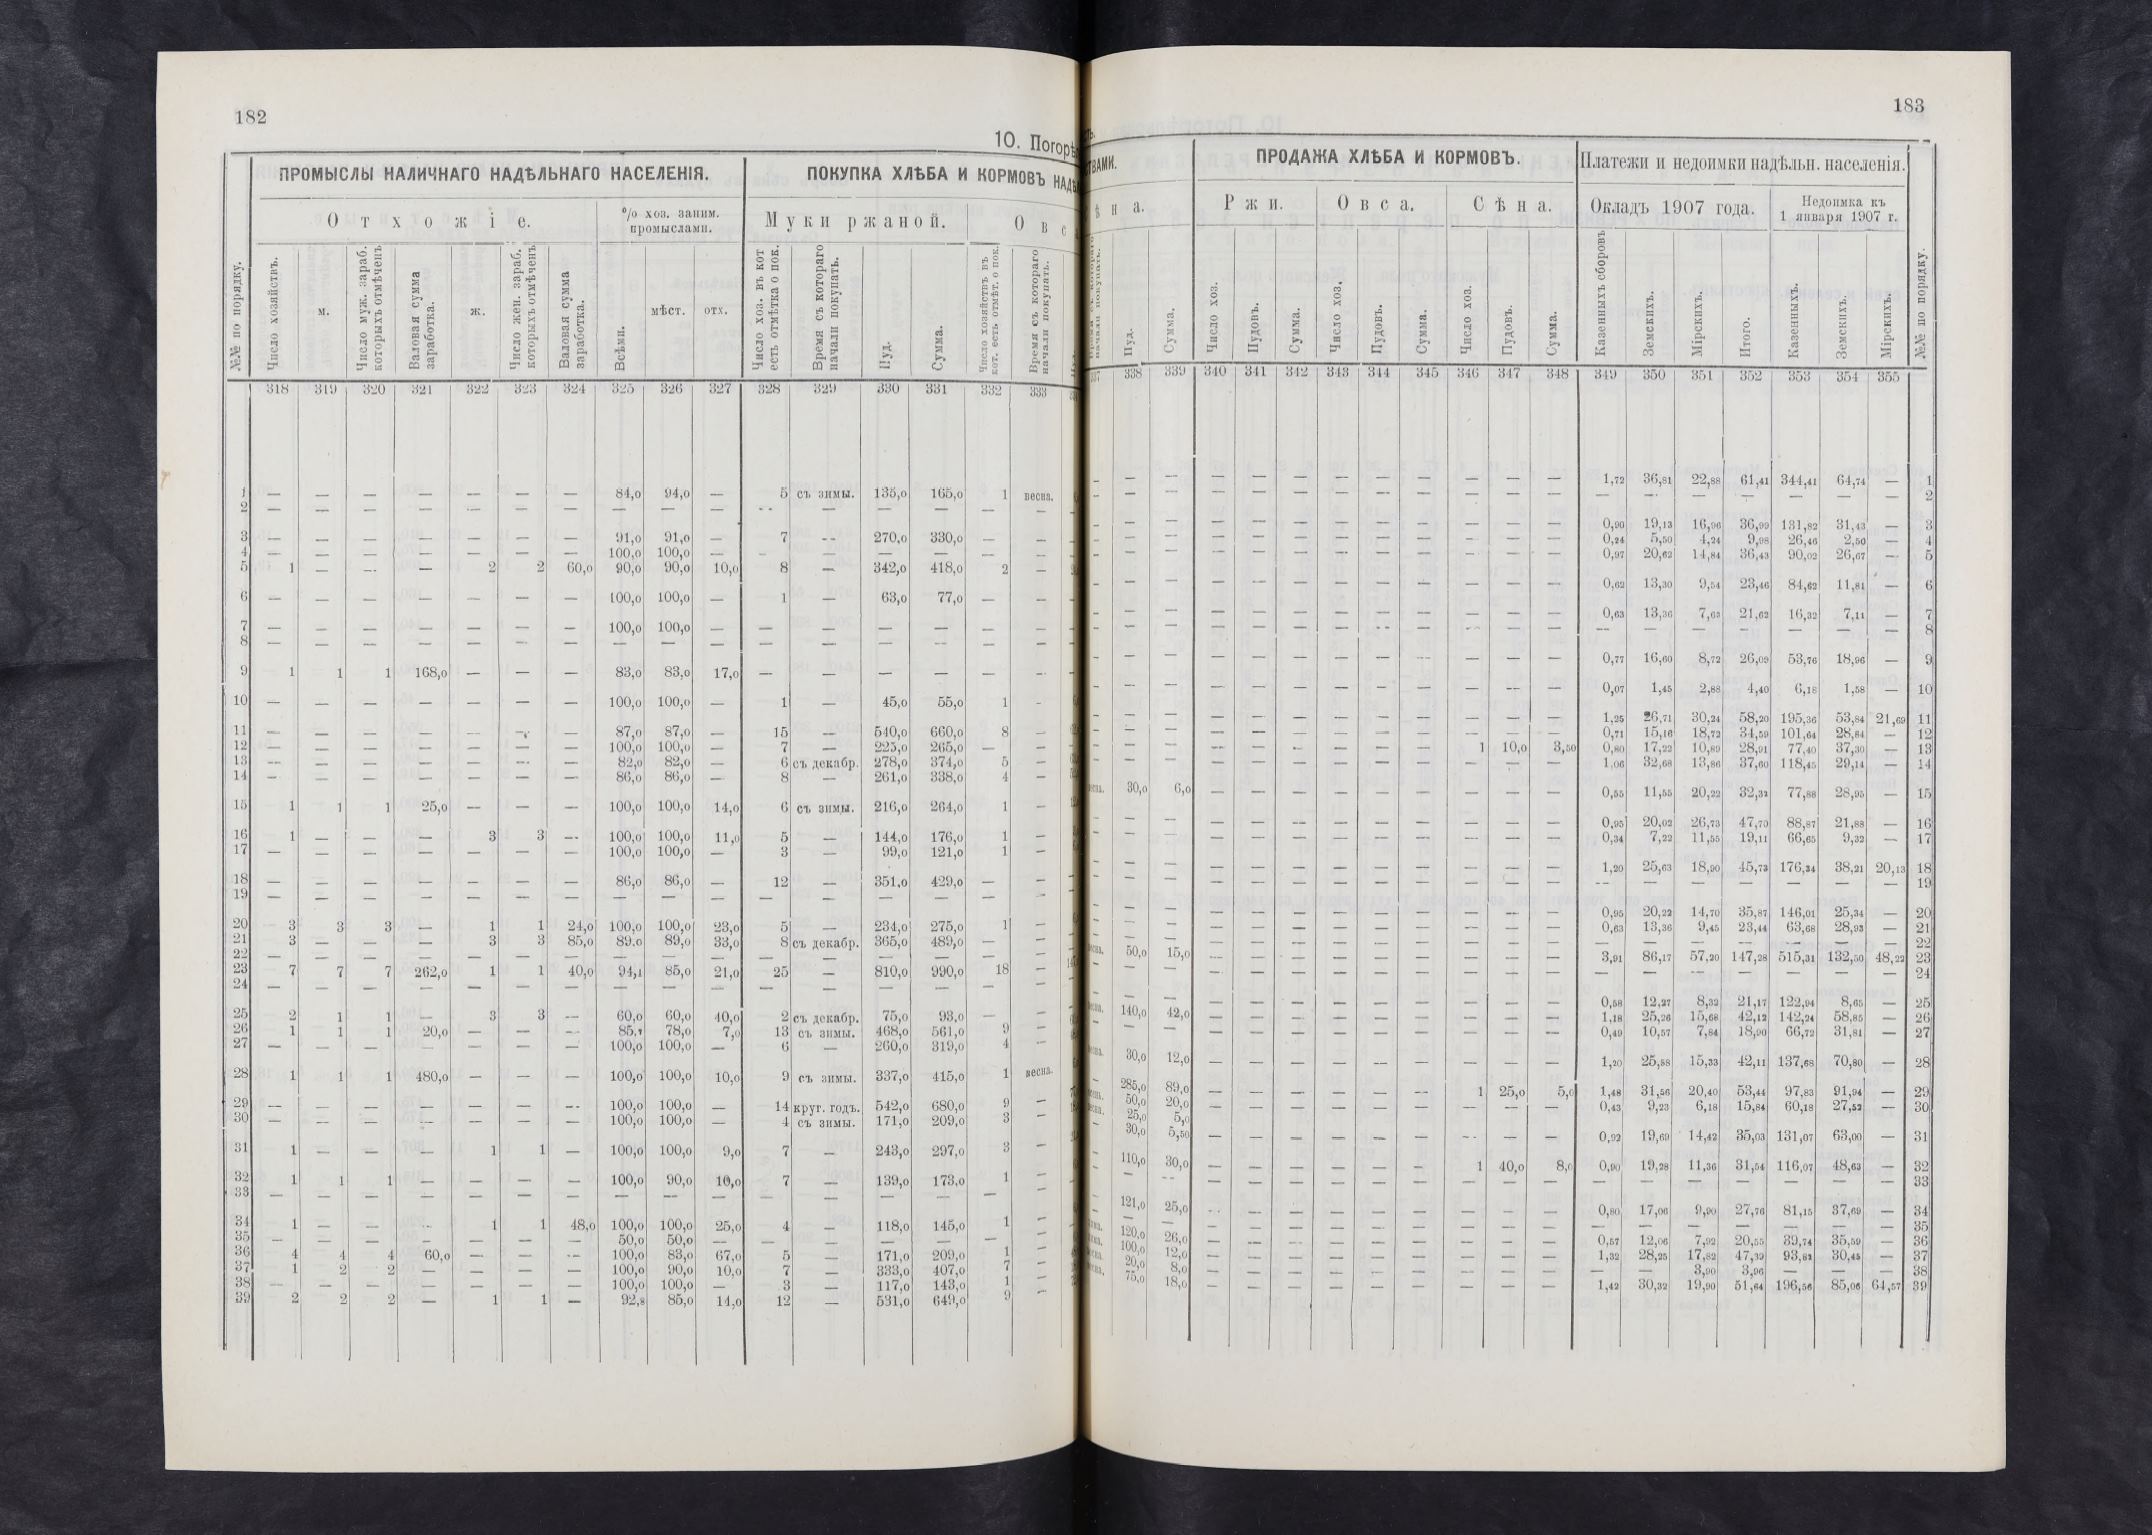 182
10. Погорѣ
ПРОМЫСЛЫ НАЛИЧНАГО НАДѢЛЬНАГО НАСЕЛЕНІЯ. ПОКУПКА ХЛѢБА И КОРМОВЪ НАДѢ
Отхожіе. % хоз. заним. промыслами. Муки ржаной. Овс
№№ по порядку. Число хозяйствъ. м. Число муж. зараб. которыхъ отмѣченъ Валовая сумма заработка. ж. Число жен. зараб. которыхъ отмѣченъ Валовая сумма заработка. Всѣми. мѣст. отх. Число хоз. въ кот есть отмѣтка о пок. Время съ котораго начали покупать. Пуд. Сумма. Число хозяйствъ въ кот. есть отмѣт. о пок. Время съ котораго начали покупать.
318 319 320 321 322 323 324 325 326 327 328 329 330 331 332 333
1 — — — — — — — 84,0 94,0 — 5 съ зимы. 135,0 165,0 1 весна.
2 — — — — — — — — — — — — — — — —
3 — — — — — — — 91,0 91,0 — 7 — 270,0 330,0 — —
4 — — — — — — — 100,0 100,0 — — — — — — —
5 1 — — — 2 2 60,0 90,0 90,0 10,0 8 — 342,0 418,0 2 —
6 — — — — — — — 100,0 100,0 — 1 — 63,0 77,0 — —
7 — — — — — — — 100,0 100,0 — — — — — — —
8 — — — — — — — — — — — — — — — —
9 1 1 1 168,0 — — — 83,0 83,0 17,0 — — — — — —
10 — — — — — — — 100,0 100,0 — 1 — 45,0 55,0 1 —
11 — — — — — — — 87,0 87,0 — 15 — 540,0 660,0 8 —
12 — — — — — — — 100,0 100,0 — 7 — 225,0 265,0 — —
13 — — — — — — — 82,0 82,0 — 6 съ декабр. 278,0 374,0 5 —
14 — — — — — — — 86,0 86,0 — 8 — 261,0 338,0 4 —
15 1 1 1 25,0 — — — 100,0 100,0 14,0 6 съ зимы. 216,0 264,0 1 —
16 1 — — — 3 3 — 100,0 100,0 11,0 5 — 144,0 176,0 1 —
17 — — — — — — — 100,0 100,0 — 3 — 99,0 121,0 1 —
18 — — — — — — — 86,0 86,0 — 12 — 351,0 429,0 — —
19 — — — — — — — — — — — — — — — —
20 3 3 3 — 1 1 24,0 100,0 100,0 23,0 5 — 234,0 275,0 1 —
21 3 — — — 3 3 85,0 89,0 89,0 33,0 8 съ декабр. 365,0 489,0 — —
22 — — — — — — — — — — — — — — — —
23 7 7 7 262,0 1 1 40,0 94,1 85,0 21,0 25 — 810,0 990,0 18 —
24 — — — — — — — — — — — — — — — —
25 2 1 1 — 3 3 — 60,0 60,0 40,0 2 съ декабр. 75,0 93,0 — —
26 1 1 1 20,0 — — — 85,7 78,0 7,0 13 съ зимы. 468,0 561,0 9 —
27 — — — — — — — 100,0 100,0 — 6 — 260,0 319,0 4 —
28 1 1 1 480,0 — — — 100,0 100,0 10,0 9 съ зимы. 337,0 415,0 1 весна.
29 — — — — — — — 100,0 100,0 — 14 круг. годъ. 542,0 680,0 9 —
30 — — — — — — — 100,0 100,0 — 4 съ зимы. 171,0 209,0 3 —
31 1 — — — 1 1 — 100,0 100,0 9,0 7 — 243,0 297,0 3 —
32 1 1 1 — — — — 100,0 90,0 10,0 7 — 139,0 173,0 1 —
33 — — — — — — — — — — — — — — — —
34 1 — — — 1 1 48,0 100,0 100,0 25,0 4 — 118,0 145,0 1 —
35 — — — — — — — 50,0 50,0 — — — — — — —
36 4 4 4 60,0 — — — 100,0 83,0 67,0 5 — 171,0 209,0 1 —
37 1 2 2 — — — — 100,0 90,0 10,0 7 — 333,0 407,0 7 —
38 — — — — — — — 100,0 100,0 — 3 — 117,0 143,0 1 —
39 2 2 2 — 1 1 — 92,8 85,0 14,0 12 — 531,0 649,0 9 —
183
ПРОДАЖА ХЛѢБА И КОРМОВЪ. Платежи и недоимки надѣльн. населенія.
Ржи. Овса. Сѣна. Окладъ 1907 года. Недоимка къ 1 января 1907 г.
Пуд. Сумма. Число хоз. Пудовъ. Сумма. Число хоз. Пудовъ. Сумма. Число хоз. Пудовъ. Сумма. Казенныхъ сборовъ Земскихъ. Мірскихъ. Итого. Казенныхъ. Земскихъ. Мірскихъ. №№ по порядку.
338 339 340 341 342 343 344 345 346 347 348 349 350 351 352 353 354 355
— — — — — — — — — — — 1,72 36,81 22,88 61,41 344,41 64,74 — 1
— — — — — — — — — — — — — — — — — — 2
— — — — — — — — — — — 0,90 19,13 16,96 36,99 131,82 31,43 — 3
— — — — — — — — — — — 0,24 5,50 4,24 9,98 26,46 2,50 — 4
— — — — — — — — — — — 0,97 20,62 14,84 36,43 90,02 26,67 — 5
— — — — — — — — — — — 0,62 13,30 9,54 23,46 84,62 11,81 — 6
— — — — — — — — — — — 0,63 13,36 7,63 21,62 16,32 7,11 — 7
— — — — — — — — — — — — — — — — — — 8
— — — — — — — — — — — 0,77 16,60 8,72 26,09 53,76 18,96 — 9
— — — — — — — — — — — 0,07 1,45 2,88 4,40 6,18 1,58 — 10
— — — — — — — — — — — 1,25 26,71 30,24 58,20 195,36 53,84 21,69 11
— — — — — — — — — — — 0,71 15,16 18,72 34,59 101,64 28,84 — 12
— — — — — — — — 1 10,0 3,50 0,80 17,22 10,89 28,91 77,40 37,30 — 13
— — — — — — — — — — — 1,06 32,68 13,86 37,60 118,45 29,14 — 14
30,0 6,0 — — — — — — — — — 0,55 11,55 20,22 32,32 77,88 28,95 — 15
— — — — — — — — — — — 0,95 20,02 26,73 47,70 88,87 21,88 — 16
— — — — — — — — — — — 0,34 7,22 11,55 19,11 66,65 9,32 — 17
— — — — — — — — — — — 1,20 25,63 18,90 45,73 176,34 38,21 20,13 18
— — — — — — — — — — — — — — — — — — 19
— — — — — — — — — — — 0,95 20,22 14,70 35,87 146,01 25,34 — 20
— — — — — — — — — — — 0,63 13,36 9,45 23,44 63,68 28,93 — 21
— — — — — — — — — — — — — — — — — — 22
50,0 15,0 — — — — — — — — — 3,91 86,17 57,20 147,28 515,31 132,50 48,22 23
— — — — — — — — — — — — — — — — — — 24
— — — — — — — — — — — 0,58 12,27 8,32 21,17 122,94 8,65 — 25
140,0 42,0 — — — — — — — — — 1,18 25,26 15,68 42,12 142,24 58,85 — 26
— — — — — — — — — — — 0,49 10,57 7,84 18,90 66,72 31,81 — 27
30,0 12,0 — — — — — — — — — 1,20 25,58 15,33 42,11 137,68 70,80 — 28
285,0 89,0 — — — — — — 1 25,0 5,0 1,48 31,56 20,40 53,44 97,83 91,94 — 29
50,0 20,0 — — — — — — — — — 0,43 9,23 6,18 15,84 60,18 27,52 — 30
25,0 5,0
30,0 5,50 — — — — — — — — — 0,92 19,69 14,42 35,03 131,07 63,00 — 31
110,0 30,0 — — — — — — 1 40,0 8,0 0,90 19,28 11,36 31,54 116,07 48,63 — 32
— — — — — — — — — — — — — — — — — — 33
121,0 25,0 — — — — — — — — — 0,80 17,06 9,90 27,76 81,15 37,69 — 34
— — — — — — — — — — — — — — — — — — 35
120,0 26,0 — — — — — — — — — 0,57 12,06 7,92 20,55 39,74 35,59 — 36
100,0 12,0 — — — — — — — — — 1,32 28,25 17,82 47,39 93,82 30,45 — 37
20,0 8,0 — — — — — — — — — — — 3,90 3,96 — — — 38
75,0 18,0 — — — — — — — — — 1,42 30,32 19,90 51,64 196,56 85,06 64,57 39